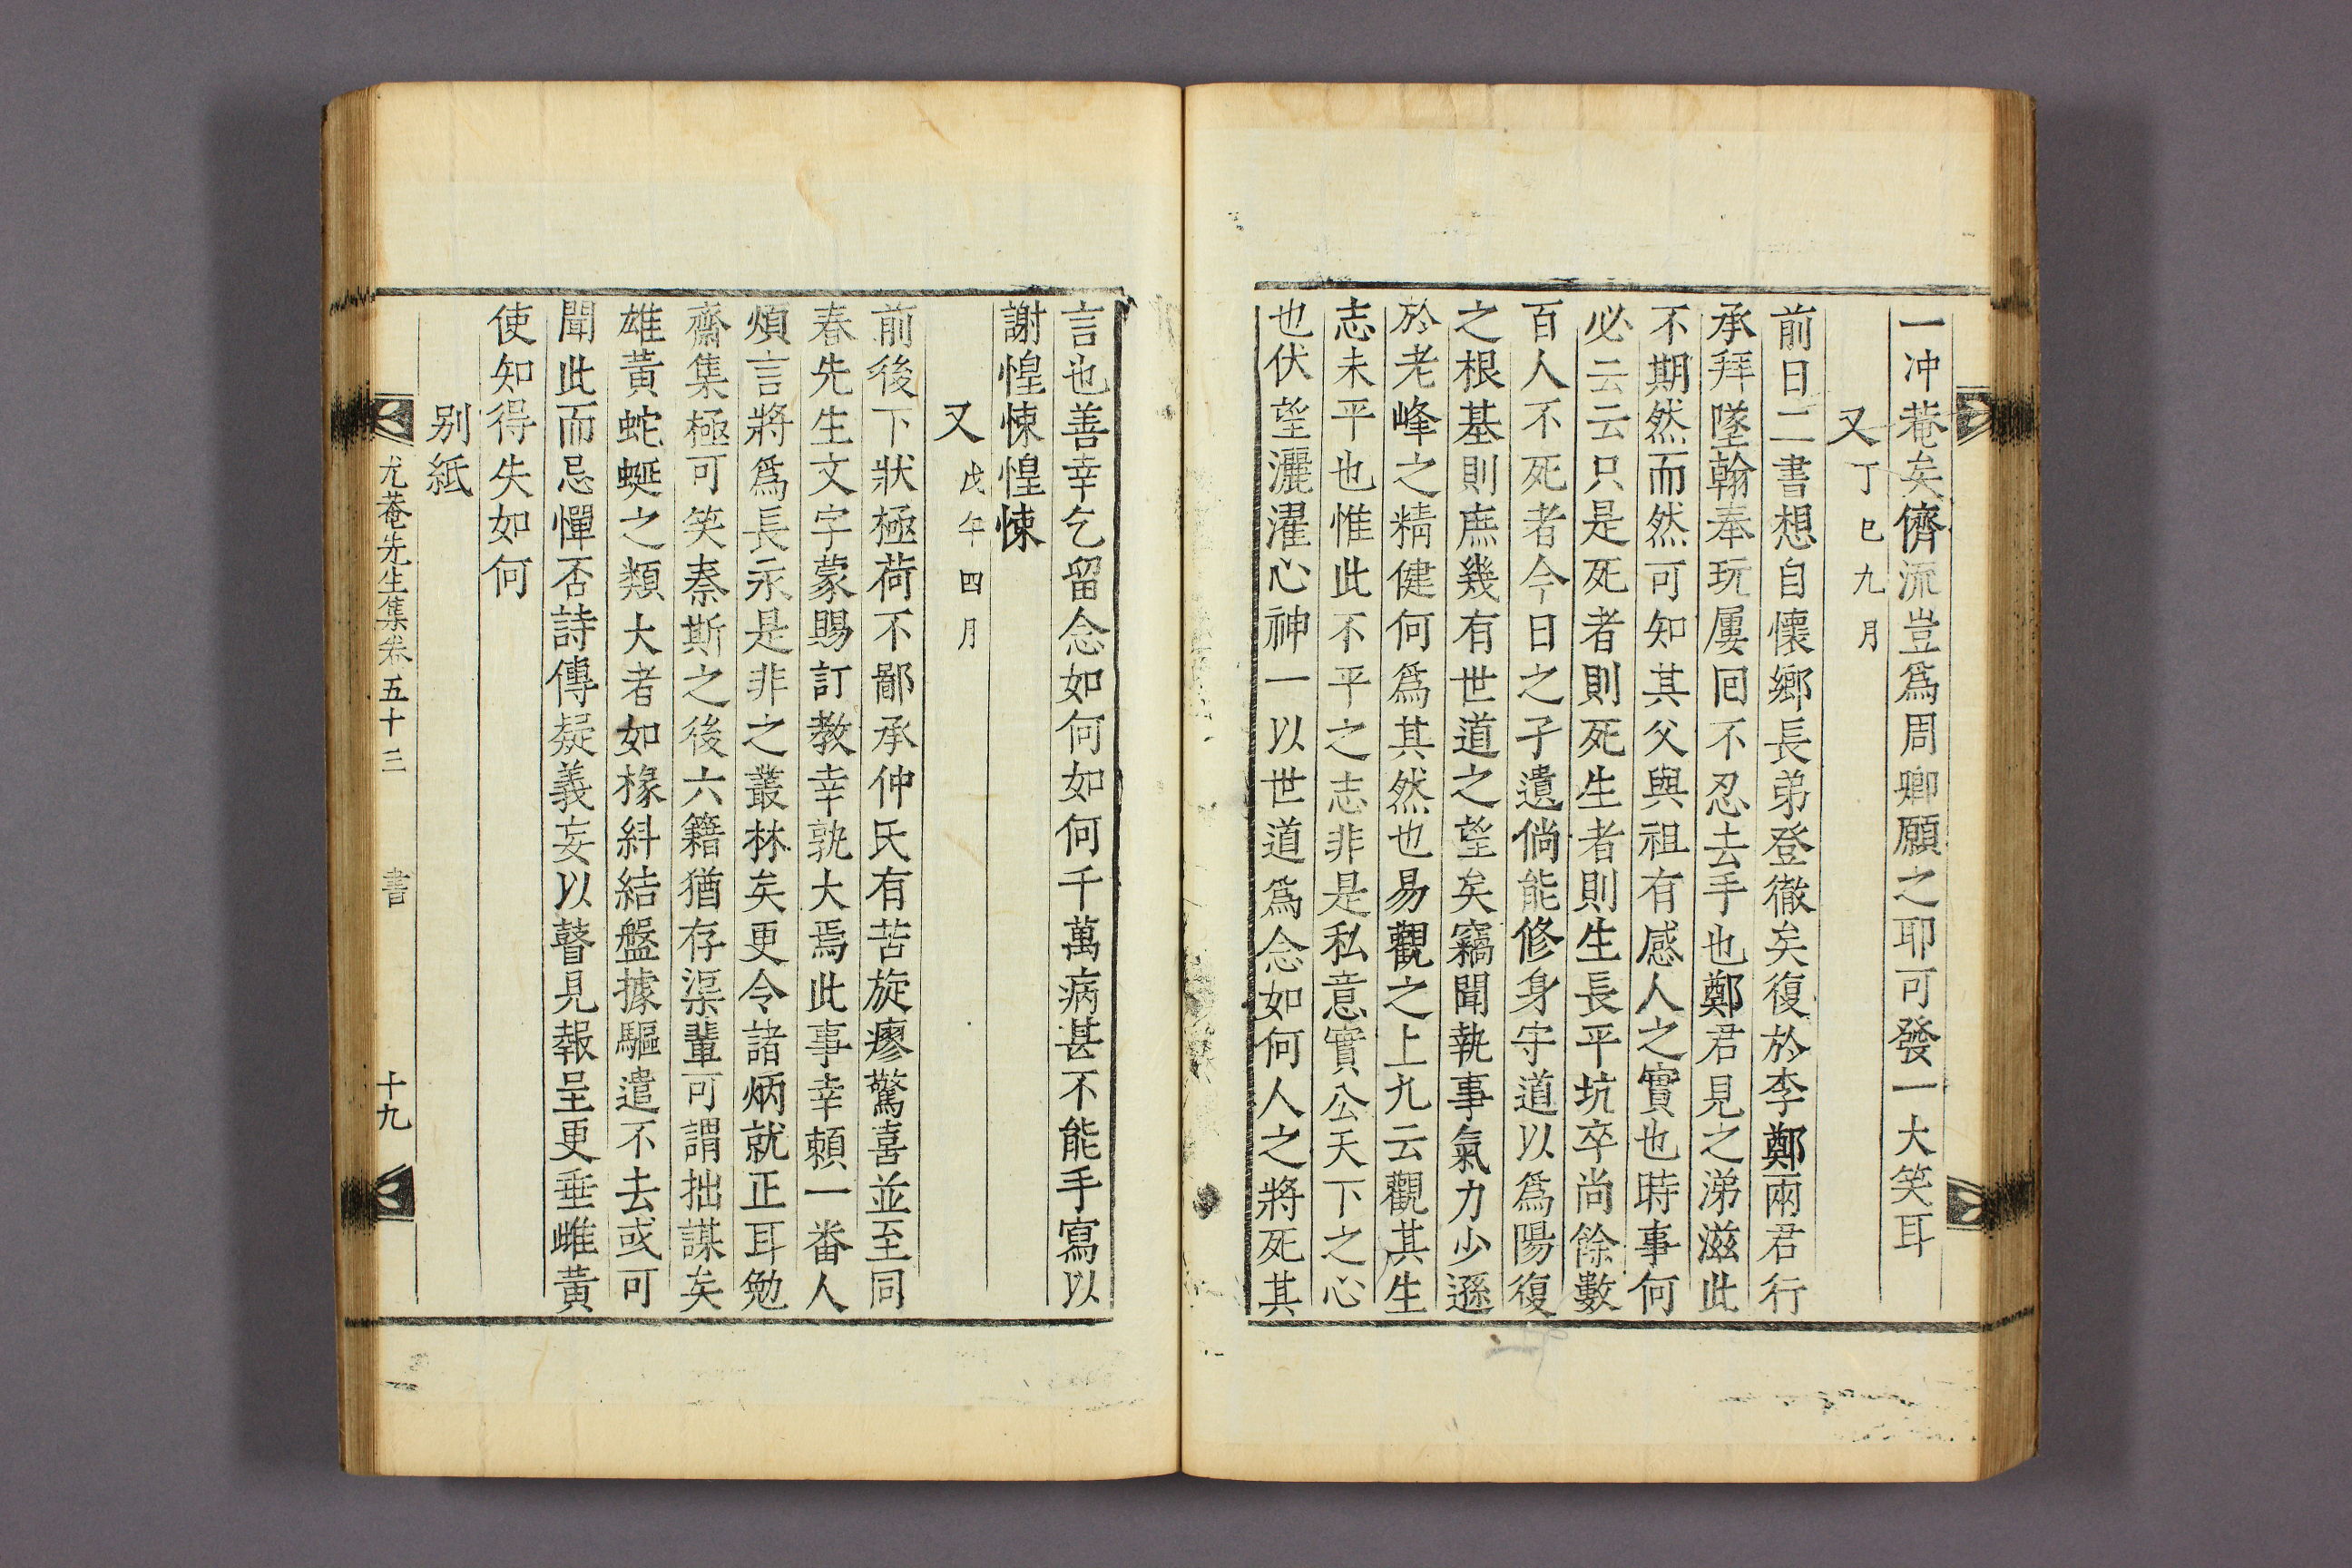 一冲菴矣儕流豈爲周卿願之耶可發一大笑耳
又 丁巳九月
前日二書想自懷鄉長弟登徹矣復於李鄭兩君行
承拜墜翰奉玩屢回不忍去手也鄭君見之涕滋此
不期然而然可知其父與祖有感人之實也時事何
必云云只是死者則死生者則生長平坑卒尚餘數
百人不死者今日之孑遺倘能修身守道以爲陽復
之根基則庶幾有世道之望矣竊聞執事氣力少遜
於老峰之精健何爲其然也易觀之上九云觀其生
志未平也惟此不平之志非是私意實公天下之心
也伏望灑濯心神一以世道爲念如何人之將死其
言也善幸乞留念如何如何千萬病甚不能手寫以
謝惶悚惶悚
又 戊午四月
前後下狀極荷不鄙承仲氏有苦旋瘳驚喜並至同
春先生文字蒙賜訂教幸孰大焉此事幸賴一番人
煩言將爲長永是非之叢林矣更令諸炳就正耳勉
齋集極可笑秦斯之後六籍猶存渠輩可謂拙謀矣
雄黃蛇蜒之類大者如椽糾結盤據驅遣不去或可
聞此而忌憚否詩傳疑義妄以瞽見報呈更垂雌黃
使知得失如何
別紙
尤菴先生集卷五十三 書 十九